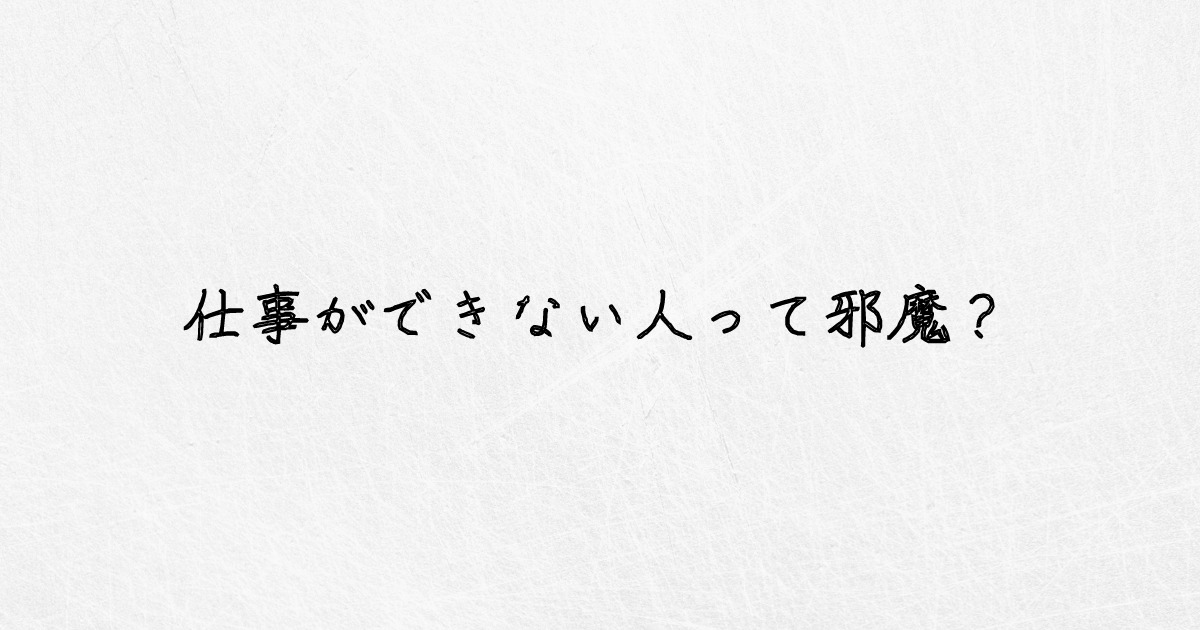 仕事ができない人って邪魔？